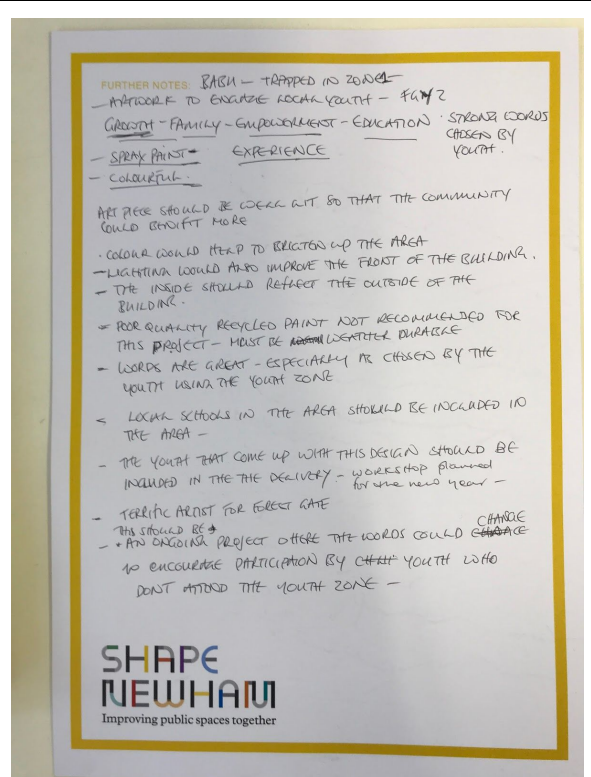 FURTHER NOTES: BABU - TRAPPED IN ZONE 1
- ARTWORK TO ENGAGE LOCAL YOUTH -
GROWTH - FAMILY - EMPOWORMENT - EDUCATION · STRONG WORDS
CHOSEN BY
YOUTH.
- SPRAY PAINT - EXPERIENCE
- COLOURFUL.
ART PIECE SHOULD BE WELL LIT SO THAT THE COMMUNITY
COULD BENIFIT MORE
· COLOUR WOULD HELP TO BRIGTEN UP THE AREA
- LIGHTING WOULD ALSO IMPROVE THE FRONT OF THE BUILDING.
- THE INSIDE SHOULD REFLECT THE OUTSIDE OF THE
BUILDING.
- POOR QUALITY RECYCLED PAINT NOT RECOMMENDED FOR
THIS PROJECT - MUST BE WEATHER DURABLE
- WORDS ARE GREAT - ESPECIALLY AS CHOSEN BY THE
YOUTH USING THE YOUTH ZONE
- LOCAL SCHOOLS IN THE AREA SHOULD BE INCLUDED IN
THE AREA -
- THE YOUTH THAT COME UP WITH THIS DESIGN SHOULD BE
INCLUDED IN THE THE DELIVERY - workshop planned
for the new year -
- TERRIFIC ARTIST FOR FOREST GATE
THIS SHOULD BE
- AN ONGOING PROJECT WHERE THE WORDS COULD CHANGE
TO ENCOURAGE PARTICIPATION BY YOUTH WHO
DON'T ATTEND THE YOUTH ZONE -
SHAPE
NEWHAM
Improving public spaces together